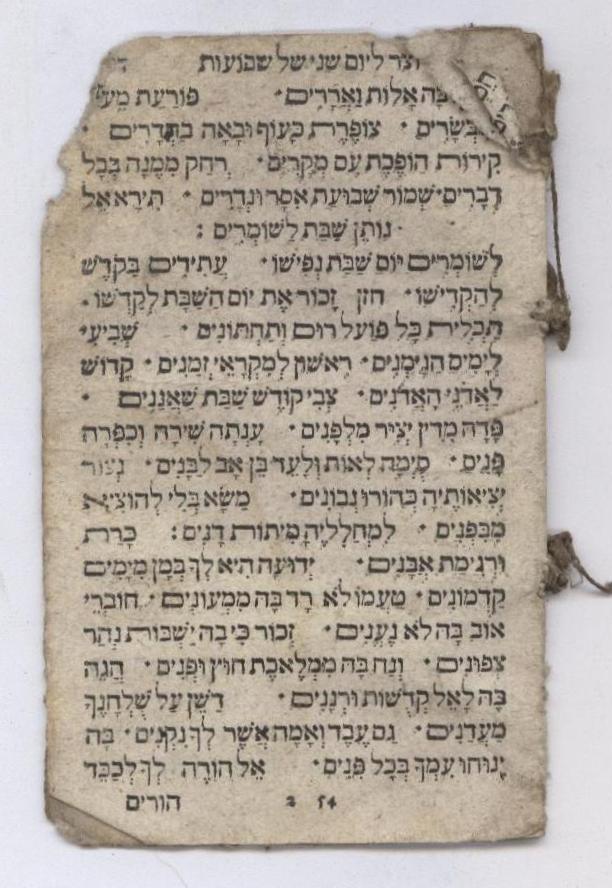 וצר ליום שני של שבועות
בה אלות ונאררים · פורעת
בשרים · צופפת כעוף ובאה בתדרים ·
קירות הופכת עם מקרים · רחק ממנה בכל
דברים · שמור שבועת אסר ונדרים · תירא אל
· נותן שבת לשומרים :
לשומרים יום שבת נפישו · עתידים בקדש
להקדישו · חזן זכור את יום השבת לקדשו ·
תכלית כל פועל רום ותחתונים · שביעי
לימים הנימנים · ראשון למקראי זמנים · קדוש
לאדני האדנים · צבי קודש שבת שאננים ·
פדה מדין יציר מלפנים · ענתה שירה וכפרה
פנים · סימה לאות ולעד בן אב לבנים · נצור
יציאותיה בהורו נבונים · משא בלי להוציא
מבפנים · למחלליה מיתות דנים : כרת
ורגימת אבנים · ידועה היא לך במן מימים
קדמונים · טעמו לא רד בה ממעונים · חוברי
אוב בה לא נענים · זכור כי בה ישבות נהר
צפונים · ונח בה ממלאכת חוץ ופנים · הגה
בה לאל קדשות ורננים · דשן על שלחנך
מעדנים · גם עבד ואמה אשר לך נקנים · בה
ינוחו עמך בכל פנים · אל הורה לך לכבד
הורים 2 54